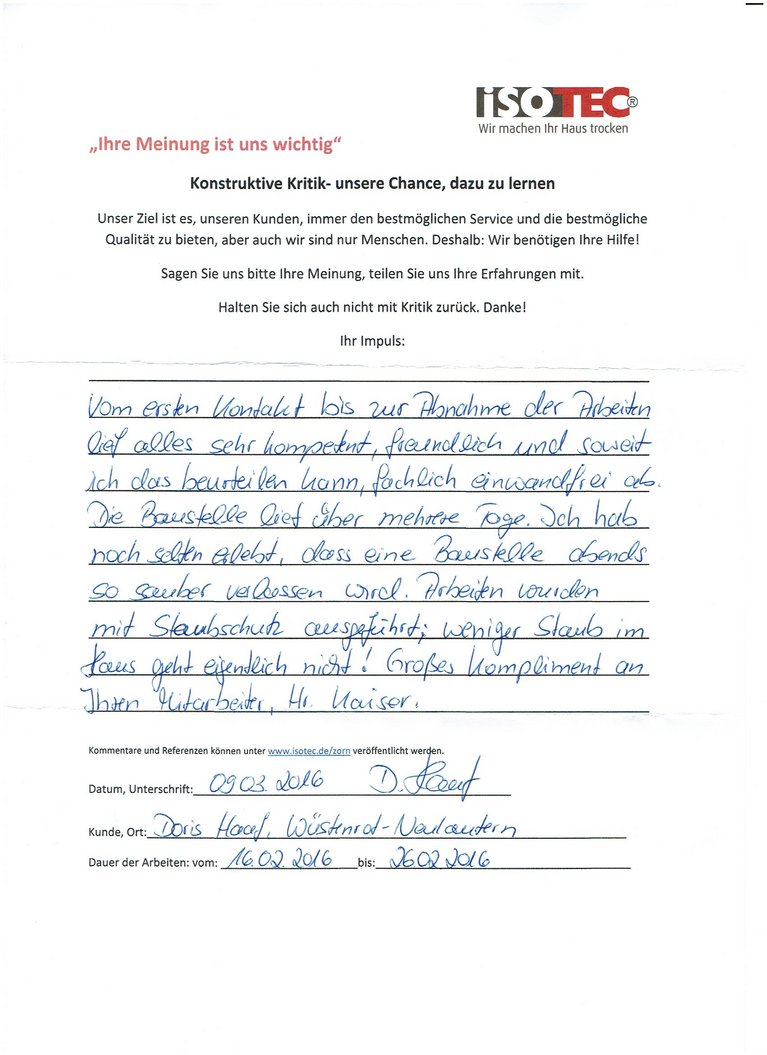 ISOTEC®
Wir machen Ihr Haus trocken
„Ihre Meinung ist uns wichtig“
Konstruktive Kritik- unsere Chance, dazu zu lernen
Unser Ziel ist es, unseren Kunden, immer den bestmöglichen Service und die bestmögliche
Qualität zu bieten, aber auch wir sind nur Menschen. Deshalb: Wir benötigen Ihre Hilfe!
Sagen Sie uns bitte Ihre Meinung, teilen Sie uns Ihre Erfahrungen mit.
Halten Sie sich auch nicht mit Kritik zurück. Danke!
Ihr Impuls:
Vom ersten Kontakt bis zur Abnahme der Arbeiten
lief alles sehr kompetent, freundlich und soweit
ich das beurteilen kann, fachlich einwandfrei ab.
Die Baustelle lief über mehrere Tage. Ich hab
noch selten erlebt, dass eine Baustelle abends
so sauber verlassen wird. Arbeiten wurden
mit Staubschutz ausgeführt; weniger Staub im
Haus geht eigentlich nicht! Großes Kompliment an
Ihren Mitarbeiter, Hr. Kaiser.
Kommentare und Referenzen können unter www.isotec.de/zorn veröffentlicht werden.
Datum, Unterschrift: 09.03.2016 D. Haaf
Kunde, Ort: Doris Haaf, Wüstenrot-Neulautern
Dauer der Arbeiten: vom: 16.02.2016 bis: 26.02.2016